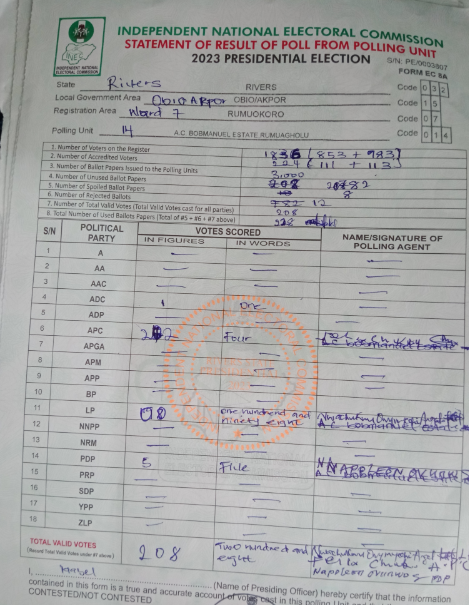 INDEPENDENT NATIONAL ELECTORAL COMMISSION
STATEMENT OF RESULT OF POLL FROM POLLING UNIT
2023 PRESIDENTIAL ELECTION
S/N: PE/0003807
FORM EC 8A
INEC
INDEPENDENT NATIONAL ELECTORAL COMMISSION
State Rivers RIVERS Code 032
Local Government Area Obio Akpor OBIO/AKPOR Code 15
Registration Area Ward 7 RUMUOKORO Code 07
Polling Unit 14 A.C. BOBMANUEL ESTATE, RUMUAGHOLU Code 014
1. Number of Voters on the Register 1836 (853 + 983)
2. Number of Accredited Voters 224 (111 + 113)
3. Number of Ballot Papers Issued to the Polling Units 3,000
4. Number of Unused Ballot Papers
5. Number of Spoiled Ballot Papers 8
6. Number of Rejected Ballots 12
7. Number of Total Valid Votes (Total Valid Votes cast for all parties) 208
8. Total Number of Used Ballots Papers (Total of #5 + #6 + #7 above) 228
S/N POLITICAL PARTY VOTES SCORED NAME/SIGNATURE OF POLLING AGENT
IN FIGURES IN WORDS
1 A
2 AA
3 AAC
4 ADC 1 One
5 ADP
6 APC Four
7 APGA
8 APM
9 APP
10 BP
11 LP one hundred and ninety eight
12 NNPP
13 NRM
14 PDP 5 Five
15 PRP
16 SDP
17 YPP
18 ZLP
TOTAL VALID VOTES 208 Two hundred and eight
(Record Total Valid Votes under #7 above)
I, Mabel (Name of Presiding Officer) hereby certify that the information
contained in this form is a true and accurate account of votes cast in this polling Unit
CONTESTED/NOT CONTESTED